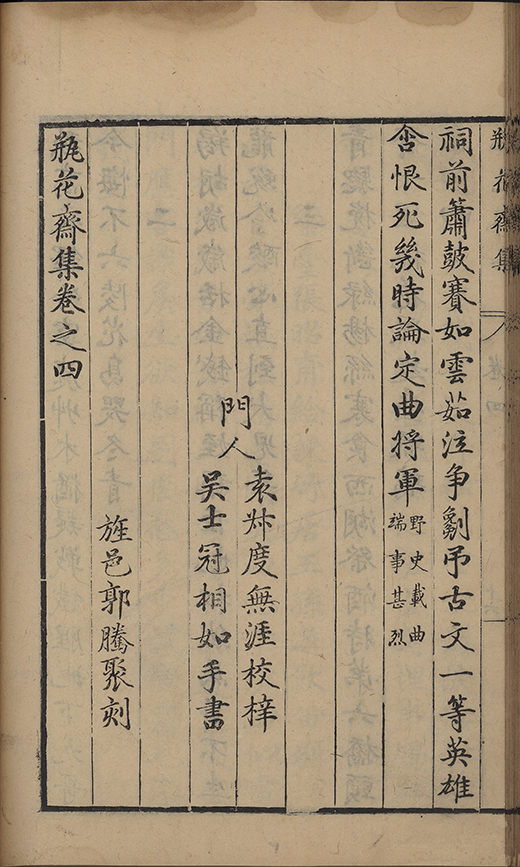 瓶花齋集
祠前簫皷賽如雲茹泣争劖吊古文一等英雄
含恨死幾時論定曲将軍野史載曲
端事甚烈
門人
袁叔度無涯校梓
吳士冠相如手書
旌邑郭騰聚刻
瓶花齋集卷之四